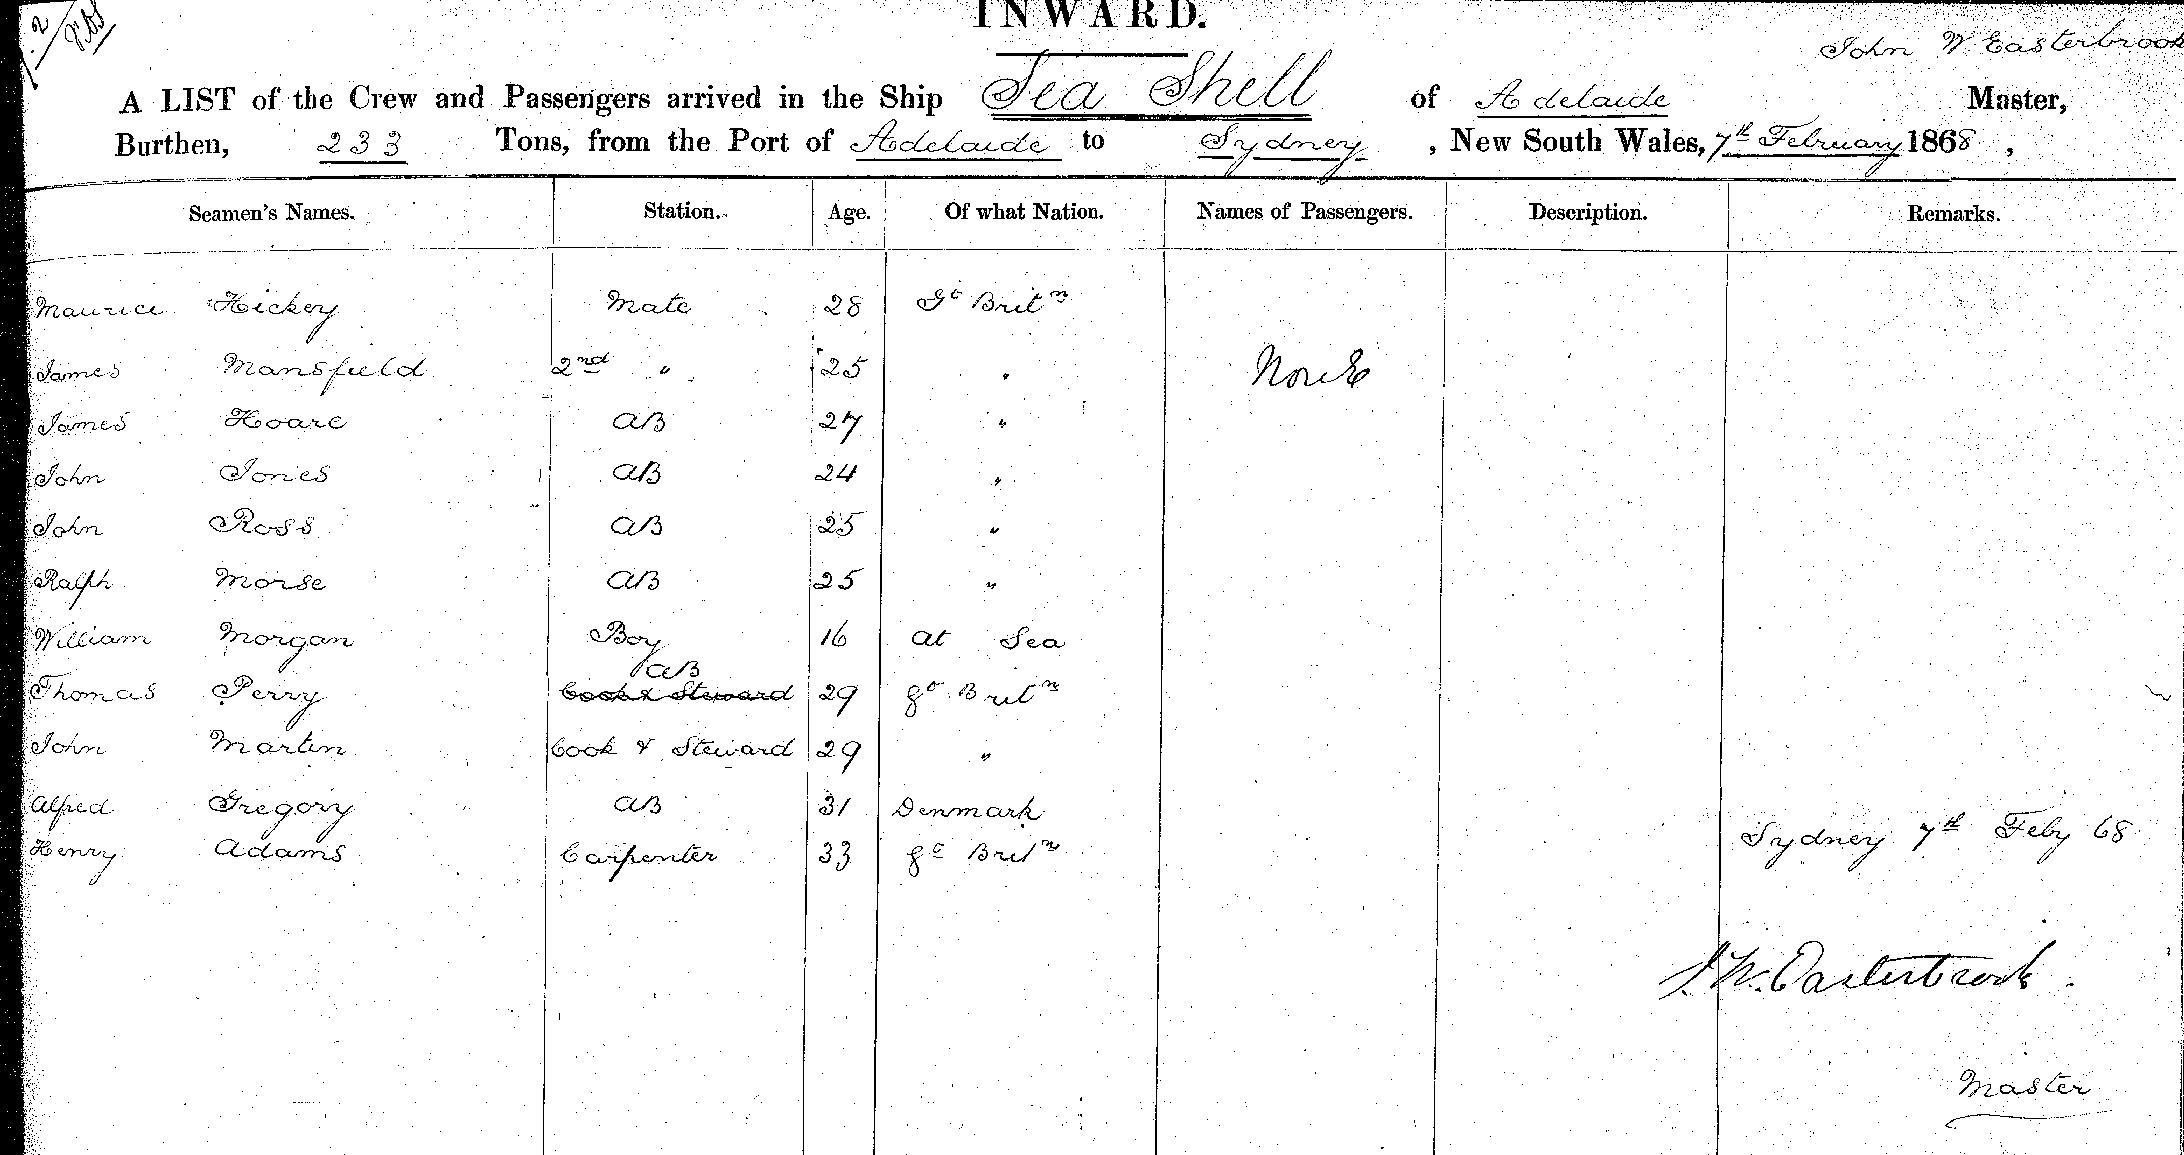 INWARD.
John W Easterbrook
A LIST of the Crew and Passengers arrived in the Ship Sea Shell of Adelaide Master,
Burthen, 233 Tons, from the Port of Adelaide to Sydney , New South Wales, 7th February 1868 ,
Seamen's Names. Station. Age. Of what Nation. Names of Passengers. Description. Remarks.
Maurice Hickey Mate 28 Gt Britn
James Mansfield 2nd " 25 " None
James Hoare AB 27 "
John Jones AB 24 "
John Ross AB 25 "
Ralph Morse AB 25 "
William Morgan Boy 16 at Sea
AB
Thomas Perry Cook & Steward 29 Gt Britn
John Martin Cook & Steward 29 "
Alfred Gregory AB 31 Denmark
Sydney 7th Feby 68
Henry Adams Carpenter 33 Gt Britn
J. W. Easterbrook
Master